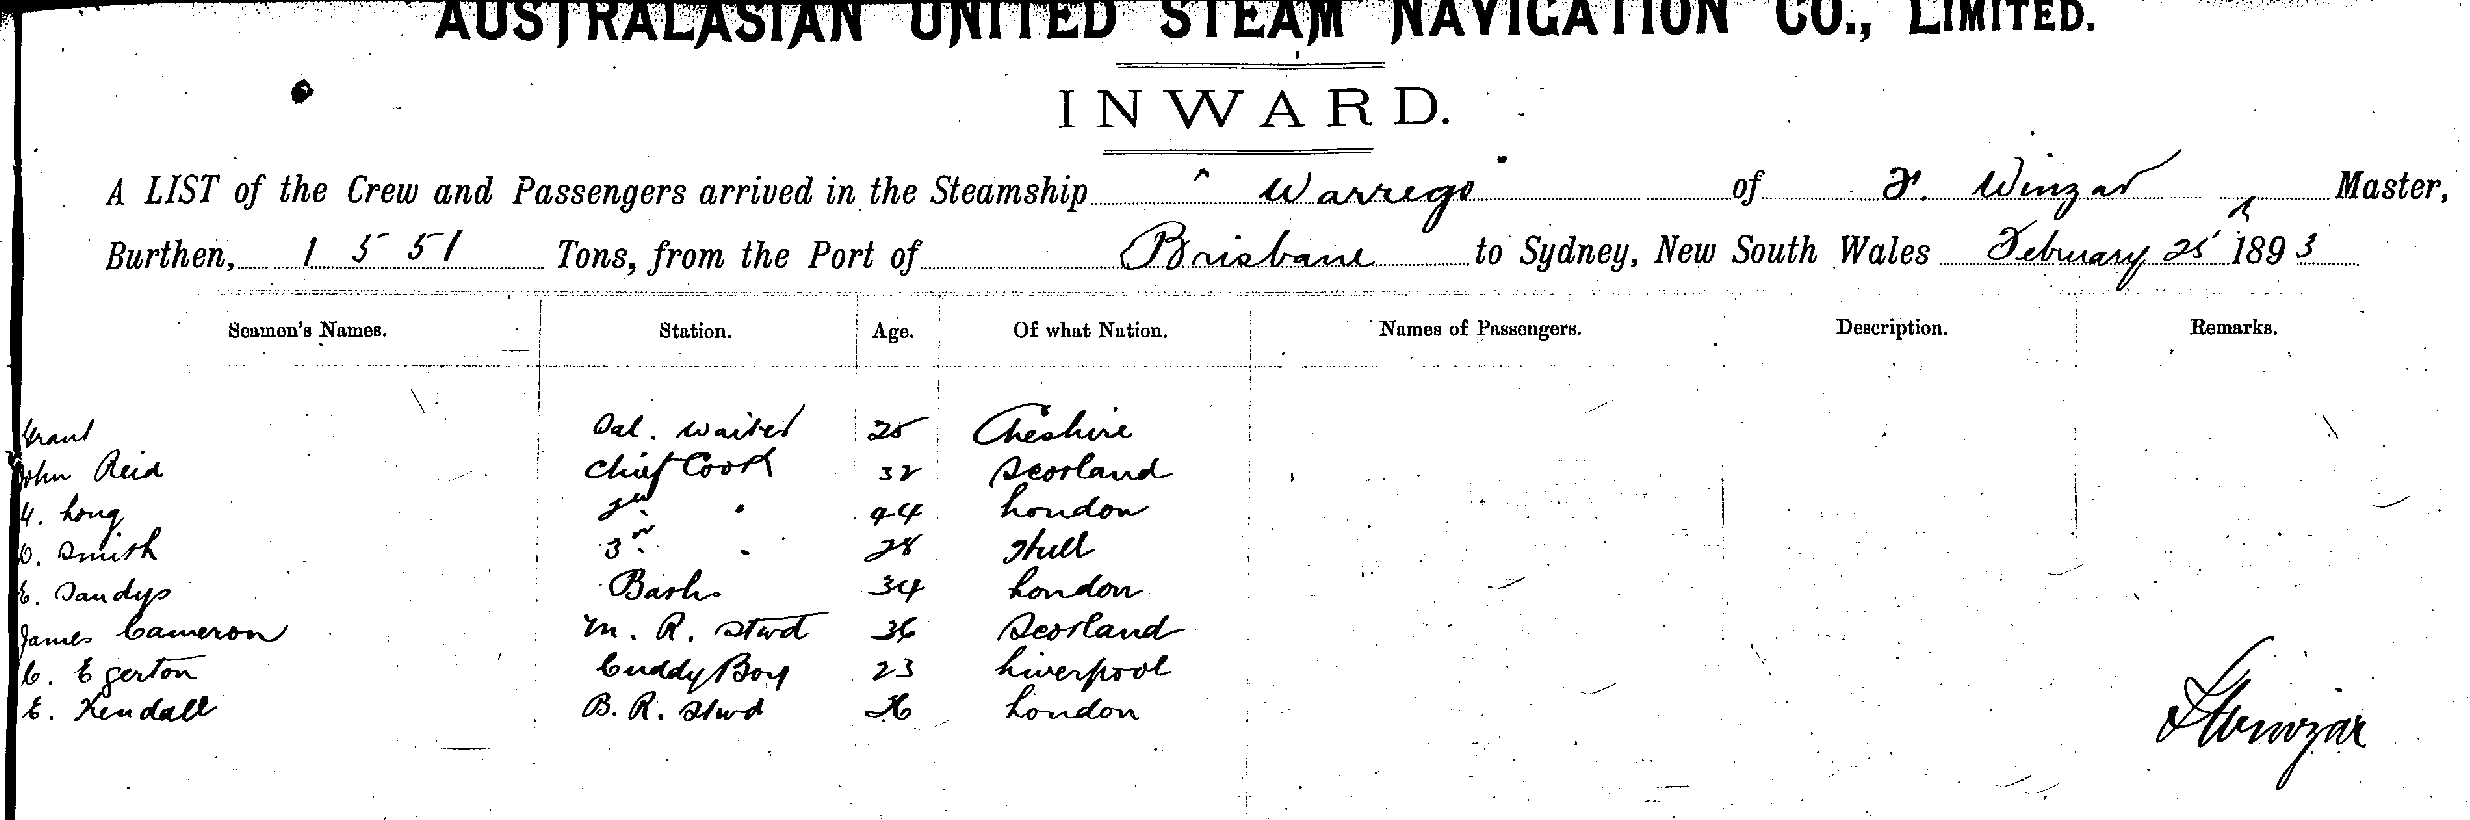 AUSTRALASIAN UNITED STEAM NAVIGATION CO., LIMITED.
INWARD.
A LIST of the Crew and Passengers arrived in the Steamship Warrego of F. Winzar Master,
Burthen, 1551 Tons, from the Port of Brisbane to Sydney, New South Wales February 25th 1893
Seamen's Names. Station. Age. Of what Nation. Names of Passengers. Description. Remarks.
Grant Sal. waiter 25 Cheshire
John Reid Chief Cook 32 Scotland
Long 2nd " 44 London
Smith 3rd " 28 Hull
E. Sandys 34 London
James Cameron M. R. Stwd 36 Scotland
C. Egerton Cuddy Boy 23 Liverpool
E. Kendall B. R. Stwd 26 London
F Winzar